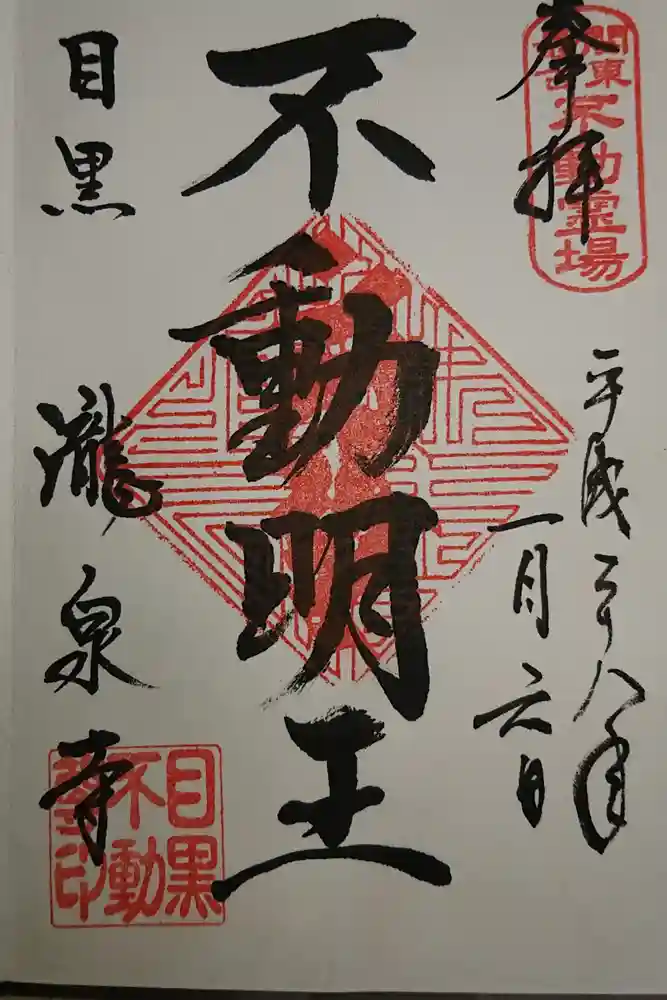 奉拝
関東
不動霊場
平成二十八年
一月六日
不動明王
目黒
瀧泉寺
目黒
不動